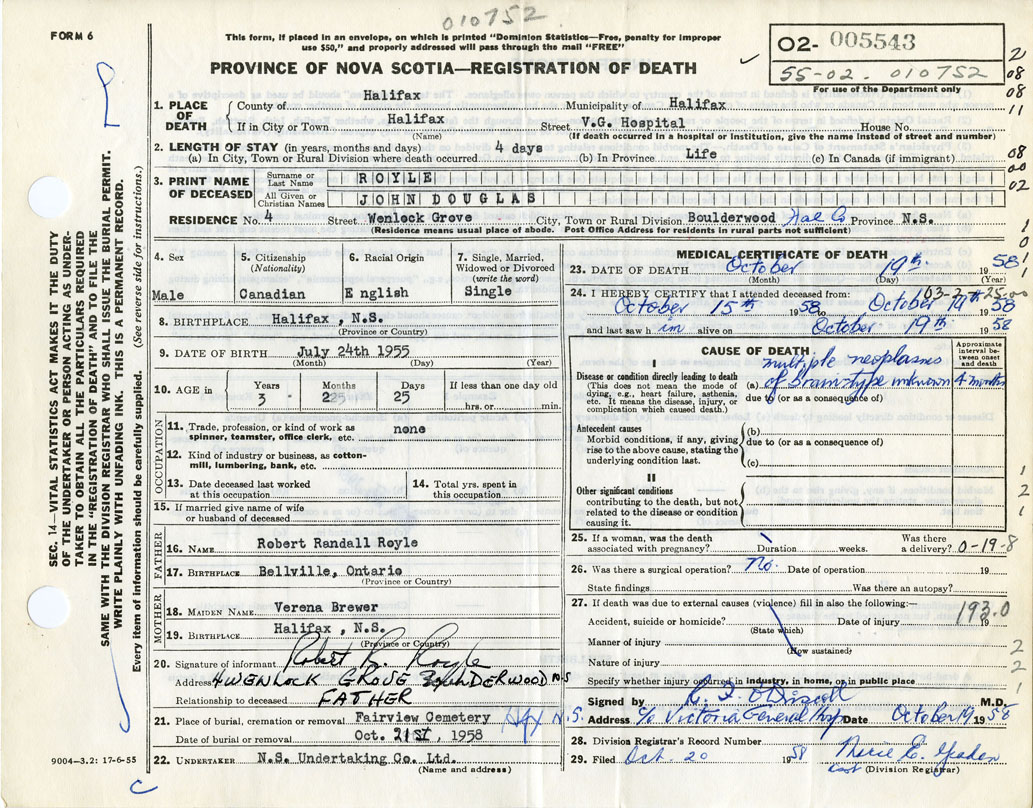 010752
FORM 6
This form, if placed in an envelope, on which is printed "Dominion Statistics—Free, penalty for improper
use $50," and properly addressed will pass through the mail "FREE"
PROVINCE OF NOVA SCOTIA—REGISTRATION OF DEATH
02- 005543
55-02. 010752
For use of the Department only
2
08
08
11
1. PLACE OF DEATH County of Halifax Municipality of Halifax
If in City or Town Halifax Street V.G. Hospital House No.
(Name) (If death occurred in a hospital or institution, give the name instead of street and number)
2. LENGTH OF STAY (in years, months and days)
(a) In City, Town or Rural Division where death occurred 4 days (b) In Province Life (c) In Canada (if immigrant)
08
00
02
3. PRINT NAME OF DECEASED Surname or Last Name ROYLE
All Given or Christian Names JOHN DOUGLAS
RESIDENCE No. 4 Street Wenlock Grove City, Town or Rural Division Boulderwood Hal Co Province N.S.
(Residence means usual place of abode. Post Office Address for residents in rural parts not sufficient)
SEC. 14—VITAL STATISTICS ACT MAKES IT THE DUTY
OF THE UNDERTAKER OR PERSON ACTING AS UNDER-
TAKER TO OBTAIN ALL THE PARTICULARS REQUIRED
IN THE "REGISTRATION OF DEATH" AND TO FILE THE
SAME WITH THE DIVISION REGISTRAR WHO SHALL ISSUE THE BURIAL PERMIT.
WRITE PLAINLY WITH UNFADING INK. THIS IS A PERMANENT RECORD.
Every item of information should be carefully supplied. (See reverse side for instructions.)
4. Sex Male
5. Citizenship (Nationality) Canadian
6. Racial Origin E nglish
7. Single, Married, Widowed or Divorced (write the word) Single
8. BIRTHPLACE Halifax , N.S.
(Province or Country)
9. DATE OF BIRTH July 24th 1955
(Month) (Day) (Year)
10. AGE in Years Months Days If less than one day old
3 2 25 hrs. or min.
OCCUPATION
11. Trade, profession, or kind of work as spinner, teamster, office clerk, etc. none
12. Kind of industry or business, as cotton-mill, lumbering, bank, etc.
13. Date deceased last worked at this occupation
14. Total yrs. spent in this occupation
15. If married give name of wife or husband of deceased
FATHER
16. NAME Robert Randall Royle
17. BIRTHPLACE Bellville, Ontario
(Province or Country)
MOTHER
18. MAIDEN NAME Verena Brewer
19. BIRTHPLACE Halifax , N.S.
(Province or Country)
20. Signature of informant Robert R. Royle
Address 4 WENLOCK GROVE BOULDERWOOD N.S
Relationship to deceased FATHER
21. Place of burial, cremation or removal Fairview Cemetery Hfx N.S.
Date of burial or removal Oct. 21ST, 1958
22. UNDERTAKER N.S. Undertaking Co. Ltd.
(Name and address)
9004—3.2: 17-6-55
C
MEDICAL CERTIFICATE OF DEATH
23. DATE OF DEATH October 19th 1958
(Month) (Day) (Year)
24. I HEREBY CERTIFY that I attended deceased from:
October 15th 1958 October 19th 1958
and last saw him alive on October 19th 1958
CAUSE OF DEATH
Approximate interval between onset and death
I
Disease or condition directly leading to death
(This does not mean the mode of dying, e.g., heart failure, asthenia, etc. It means the disease, injury, or complication which caused death.)
(a) multiple neoplasms of brain type unknown 4 months
due to (or as a consequence of)
Antecedent causes
Morbid conditions, if any, giving rise to the above cause, stating the underlying condition last.
(b)
due to (or as a consequence of)
(c)
II
Other significant conditions
contributing to the death, but not related to the disease or condition causing it.
25. If a woman, was the death associated with pregnancy? Duration weeks. Was there a delivery? 0-19-8
26. Was there a surgical operation? No. Date of operation 19
State findings Was there an autopsy?
27. If death was due to external causes (violence) fill in also the following:— 193.0
Accident, suicide or homicide? Date of injury 19
(State which)
Manner of injury
(How sustained)
Nature of injury
Specify whether injury occurred in industry, in home, or in public place
Signed by M.D.
Address c/o Victoria General Hosp Date October 19 1958
28. Division Registrar's Record Number
29. Filed Oct. 20 1958
(Division Registrar)